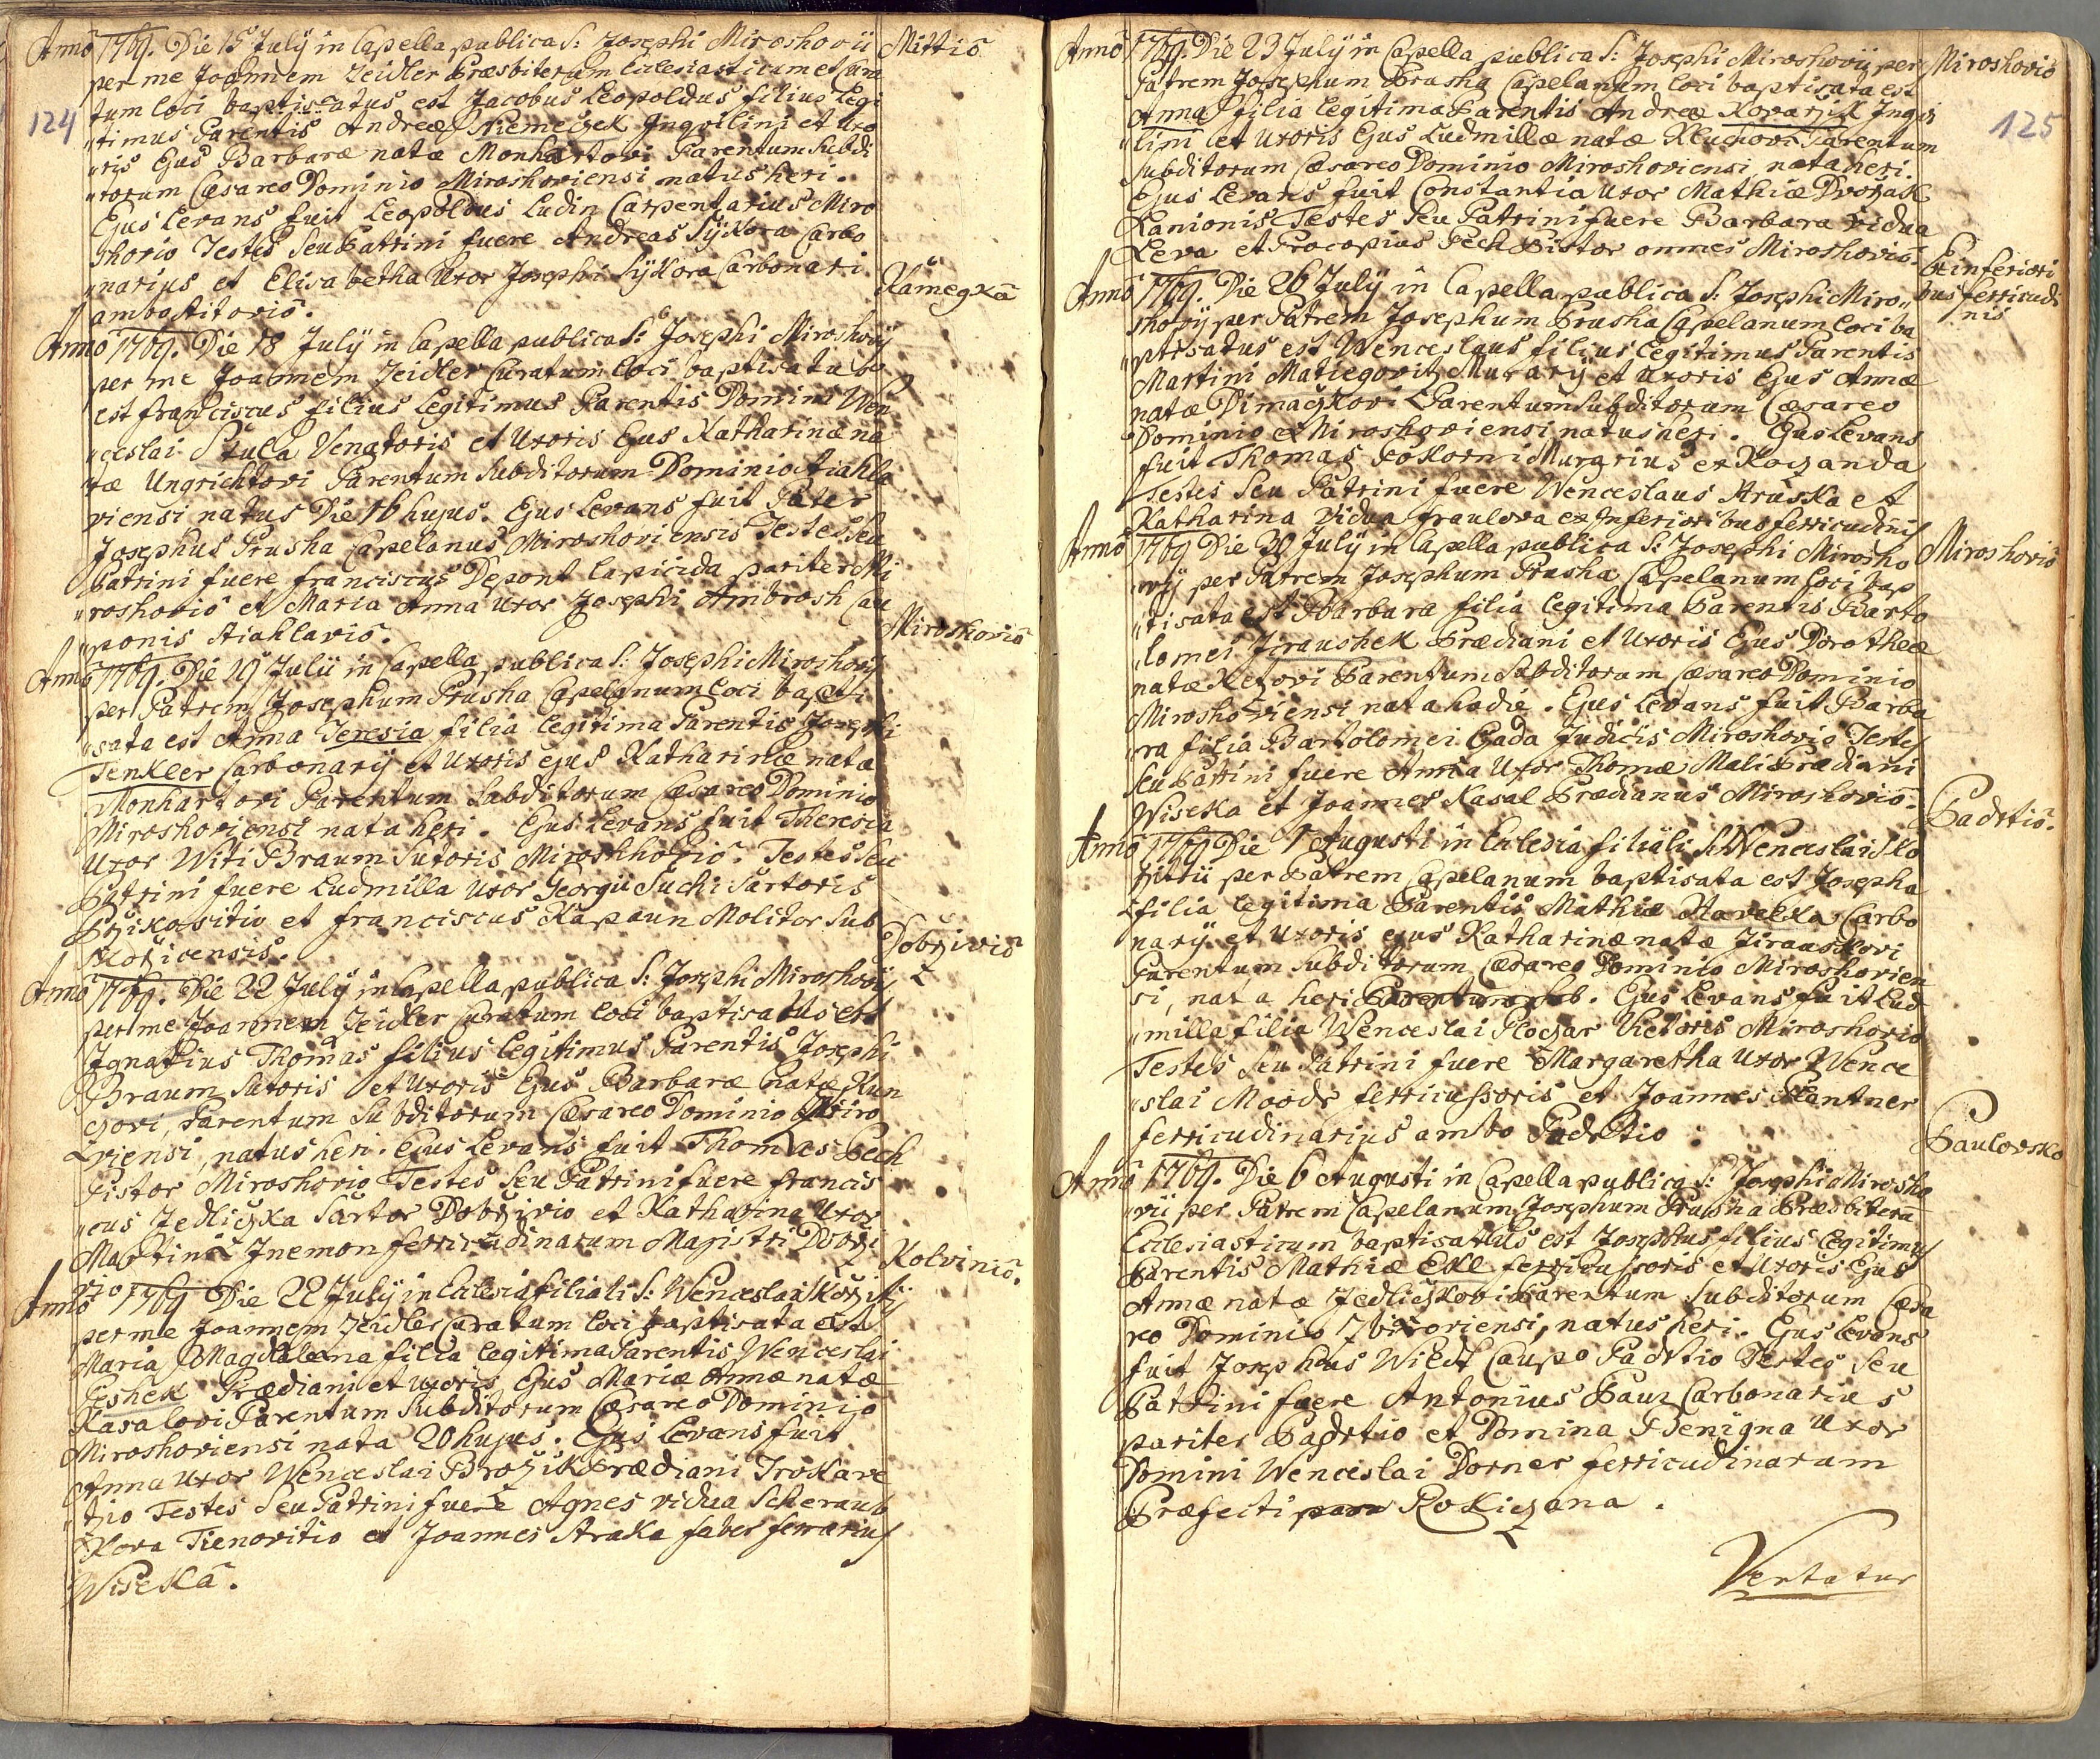 124
Annō 1769. Die 15 Julÿ in Capella publica S: Josephi Miroshovii
Mittiō
per me Joannem Zeidler Præsbiterum Ecclesiasticum et Cura
tum loci baptisatus est Jacobus Leopoldus filius Legi
"timus Parentis Andreæ Niemeczek Inquilini et Uxo
"ris Ejus Barbaræ natæ Monhartovi Parentum Subdi
"torum Cæsareo Dominio Miroshoviensi natus heri.
Ejus Levans fuit Leopoldus Ludin Carpentarius Miro
shovio Testes Seu Patrini fuere Andreas Sÿkora Carbo
"narius et Elisabetha Uxor Josephi Sÿkora Carbonari
ambo Stitoviō.
Kamegkā
Annō 1769. Die 18 Julÿ in Capella publica S: Josephi Miroshovÿ
per me Joannem Zeidler Curatum loci baptisatus
est Franciscus filius Legitimus Parentis Domini Wen
"ceslai Stula Venatoris et Uxoris Ejus Katharinæ na
"tæ Ungrichtovi Parentum Subditorum Dominio Stiahla
viensi natus Die 16 hujus. Ejus Levans fuit Pater
Josephus Prusha Capelanus Miroshoviensis Testes Seu
Patrini fuere Franciscus Depont Lapicida pariter Mi
"roshoviō et Maria Anna Uxor Josephi Ambrosh Cau
"ponis Stiahlaviō.
Miroshoviō
Annō 1769. Die 19 Julii in Capella publica S: Josephi Miroshovÿ
per Patrem Josephum Prusha Capelanum loci bapti
"sata est Anna Teresia filia Legitima Parentis Josephi
Tenkler Carbonarÿ et Uxoris ejus Katharinæ natæ
Monhartovi Parentum Subditorum Cæsareo Dominio
Miroshoviensi nata heri. Ejus Levans fuit Theresia
Uxor Witi Braum Sutoris Miroshhoviō. Testes Seu
Patrini fuere Ludmilla Uxor Georgii Suchi Sartoris
Przikositio et Franciscus Kapaun Molitor Sub
Korzicensis.
Dobrzivio
Annō 1769. Die 22 Julÿ in Capella publica S: Josephi Miroshovii
per me Joannem Zeidler Curatum loci baptisatus est
Ignatius Thomas filius legitimus Parentis Josephi
Braum Sutoris et Uxoris Ejus Barbaræ natæ Kun
czovi, Parentum Subditorum Cæsareo Dominio Miro
viensi, natus heri. Ejus Levans fuit Thomas Pech
Pistor Miroshovio Testes Seu Patrini fuere Francis
"cus Jedliczka Sartor Dobrzivio et Katharina Uxor
Martini Inemon ferricudinarum Magistri Dobrzi
vio
Kolviniō.
Annō 1769 Die 22 Julÿ in Ecclesia filiali S: Wenceslai Korzitÿ
per me Joannem Zeidler Curatum loci baptisata est
Maria Magdalena filia legitima Parentis Wenceslai
Peshek Prædiani et uxoris Ejus Mariæ Annæ natæ
Kasalovi Parentum Subditorum Cæsareo Dominio
Miroshoviensi nata 20 hujus. Ejus Levans fuit
Anna Uxor Wenceslai Brozik Prædiani Trokave
"tio Testes Seu Patrini fuere Agnes vidua Scheraub
"kova Tienovitio et Joannes Straka faber ferrarius
Wisekā.
125
Annō 1769. Die 23 Julÿ in Capella publica S: Josephi Miroshovii per
Miroshoviō
Patrem Josephum Prusha Capelanum loci baptisata est
Anna filia legitima Parentis Andreæ Kovarzik Inqui
"lini et Uxoris Ejus Ludmillæ natæ Kluchovi Parentum
Subditorum Cæsareo Dominio Miroshoviensi nata heri.
Ejus Levans fuit Constantia Uxor Mathiæ Dvorzak
Lanionis Testes Seu Patrini fuere Barbara vidua
Leva et Procopius Pech Pistor omnes Miroshoviō.
Ex inferiori
bus ferricudi
nis
Annō 1769. Die 26 Julÿ in Capella publica S: Josephi Miro"
shovÿ per Patrem Josephum Prusha Capelanum loci ba
"ptisatus est Wenceslaus filius legitimus Parentis
Martini Matiegovitz Murarÿ et Uxoris Ejus Annæ
natæ Dimaczkovi Parentum Subditorum Cæsareo
Dominio Miroshoviensi natus heri. Ejus Levans
fuit Thomas Pokorni Murarius ex Roczanda
Testes Seu Patrini fuere Wenceslaus Hruska et
Katharina Vidua Fraulova ex Inferioribus ferricudinis
Annō 1769 Die 30 Julÿ in Capella publica S: Josephi Mirosho
Miroshoviō
"vÿ per Patrem Josephum Prusha Capelanum loci bap
"tisata est Barbara filia legitima Parentis Barto
"lomei Jiraushek Prædiani et Uxoris Ejus Dorotheæ
natæ Kezovi Parentum Subditorum Cæsareo Dominio
Miroshoviensi nata hodie. Ejus Levans fuit Barba
"ra filia Bartolomei Gada Judicis Miroshovio Testes
Seu Patrini fuere Anna Uxor Thomæ Mali Prædiani
Wiseka et Joannes Kasal Prædianus Miroshoviō.
Padrtiō.
Annō 1769 Die 1 Augusti in Eclesia filiali S: Wenceslai Ko
rzittii per Patrem Capelanum baptisata est Josepha
filia legitima Parentis Mathiæ Havelka Carbo
narÿ et Uxoris ejus Katharinæ natæ Jirauskovi
Parentum Subditorum Cæsareo Dominio Miroshovien
si, nata heri Parentum sub. Ejus Levans fuit Lud
"milla filia Wenceslai Ploczar Vietoris Miroshovio
Testes Seu Patrini fuere Margaretha Uxor Wence
"slai Moodr ferricussoris et Joannes Plantner
ferricudinarius ambo Padrtio.
Paulovsko
Annō 1769. Die 6 Augusti in Capella publica S: Josephi Mirosho
"vii per Patrem Capelanum Josephum Prusha Præsbiterū
Ecclesiasticum baptisatus est Josephus filius legitimus
Parentis Mathiæ Ekl ferricussoris et Uxoris Ejus
Annæ natæ Jedliczkovi Parentum Subditorum Cæsa
reo Dominio Zbiroviensi, natus heri. Ejus Levans
fuit Josephus Wildt Caupo Padrtio Testes Seu
Patrini fuere Antonius Bauz Carbonarius
pariter Padrtio et Domina Benigna Uxor
Domini Wenceslai Dorner ferricudinarum
Præfecti Rokiczana.
Vertatur